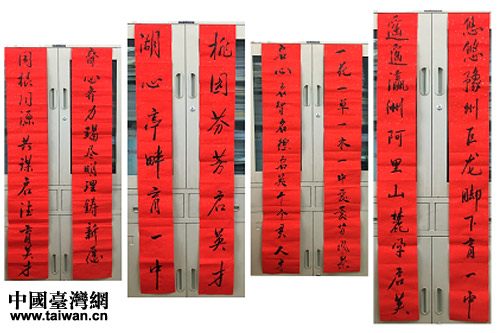 齐心齐力竭尽明理铸新德
同根同源共谋启德育英才
桃园芬芳启英才
湖心亭畔育一中
一花一草一木一中
启心启智启理启英
悠悠豫州巨龙脚下育一中
遥遥瀛洲阿里山麓孕启英
中國臺灣網
www.taiwan.cn